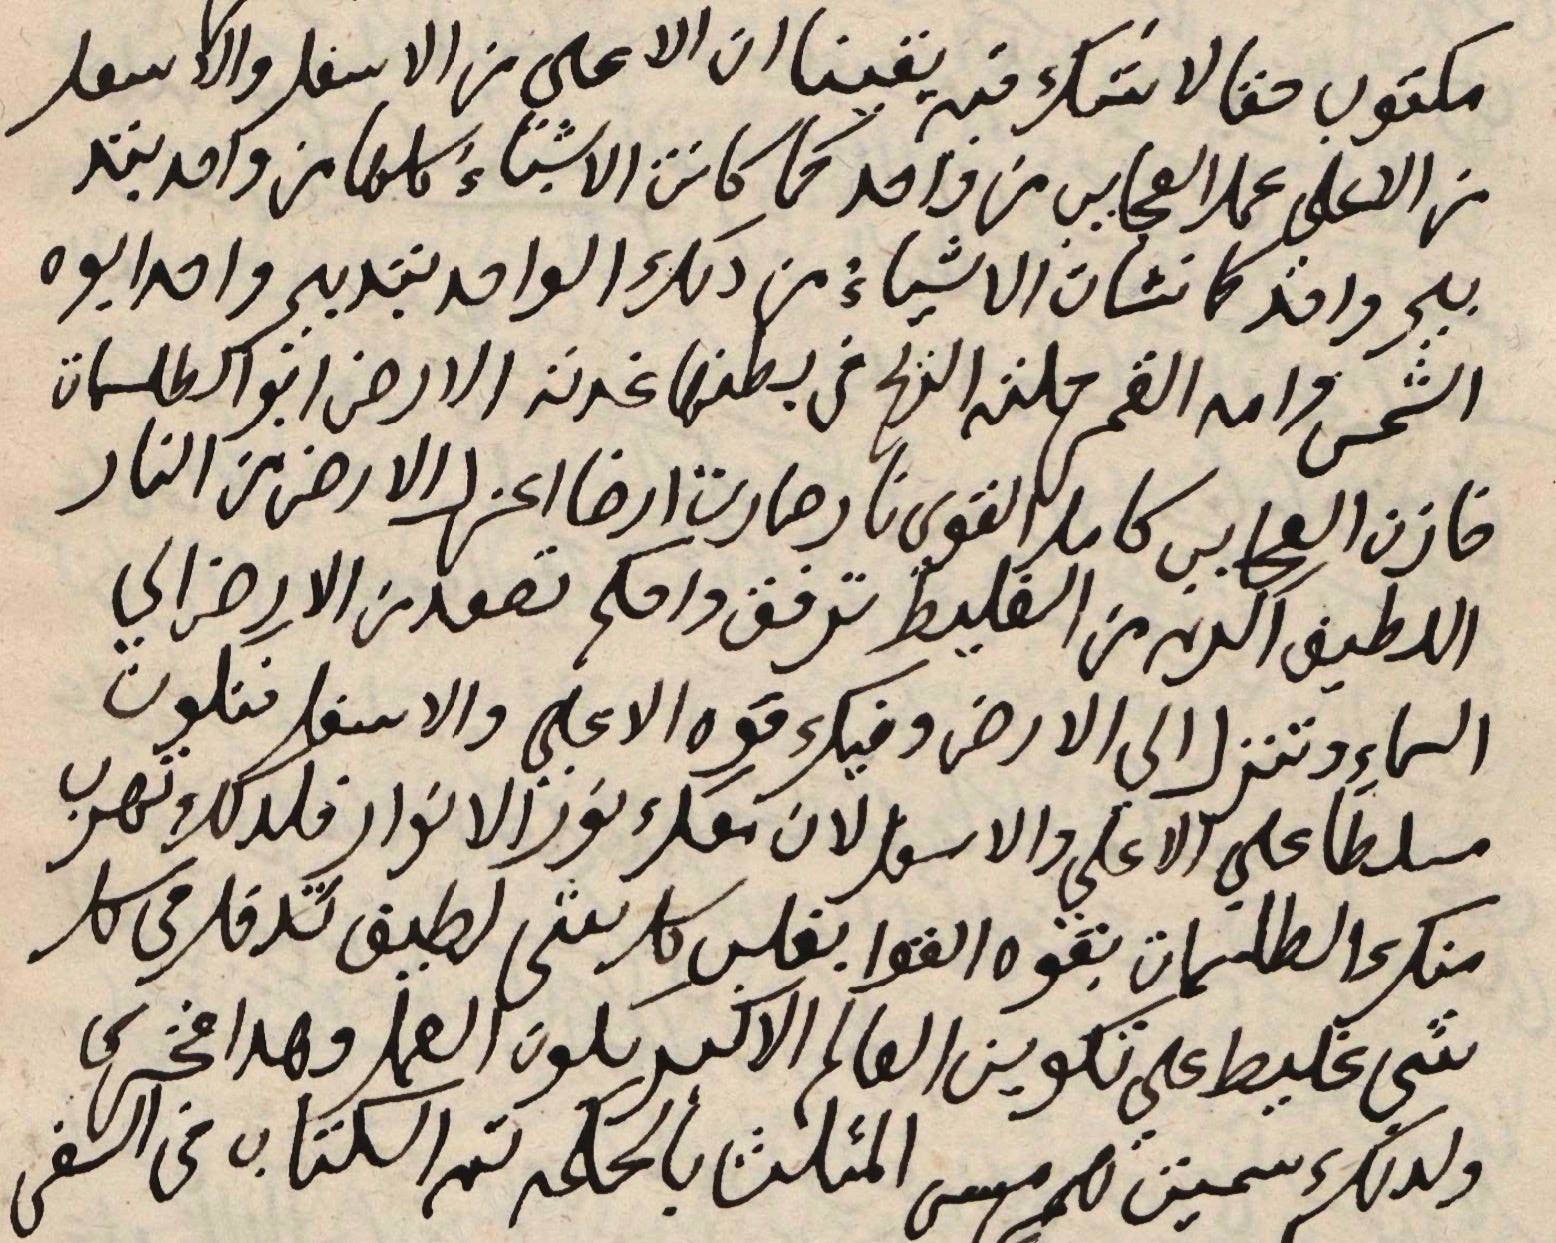 مكتوب حقا لا شك فيه يقينا ان الاعلي من الاسفل والاسفل
من الاعلي عمل العجايب من واحد كما كانت الاشياء كلها من واحد بتد
بير واحد كما نشات الاشياء من دلك الواحد بتدبير واحد ابوه
الشمس وامه القمر حملته الريح في بطنها غدته الارض ابو الطلسمات
خازن العجايب كامل القوي نار صارت ارضا اعزل الارض من النار
اللطيف اكرم من الغليظ ترفق واحكم تصعد من الارض الي
السماء وتنزل الي الارض وفيك قوه الاعلي والاسفل فتكون
مسلطا علي الاعلي والاسفل لان معك نور الانوار فلدلك تهرب
منك الطلسمات بقوه القوا يغلب كل شي لطيف تدخل في كل
شي غليظ علي تكوين العالم الاكبر يكون العمل وهدا فخري
ولدلك سميت هرمس المثلث بالحكمه تم الكتاب في السفي